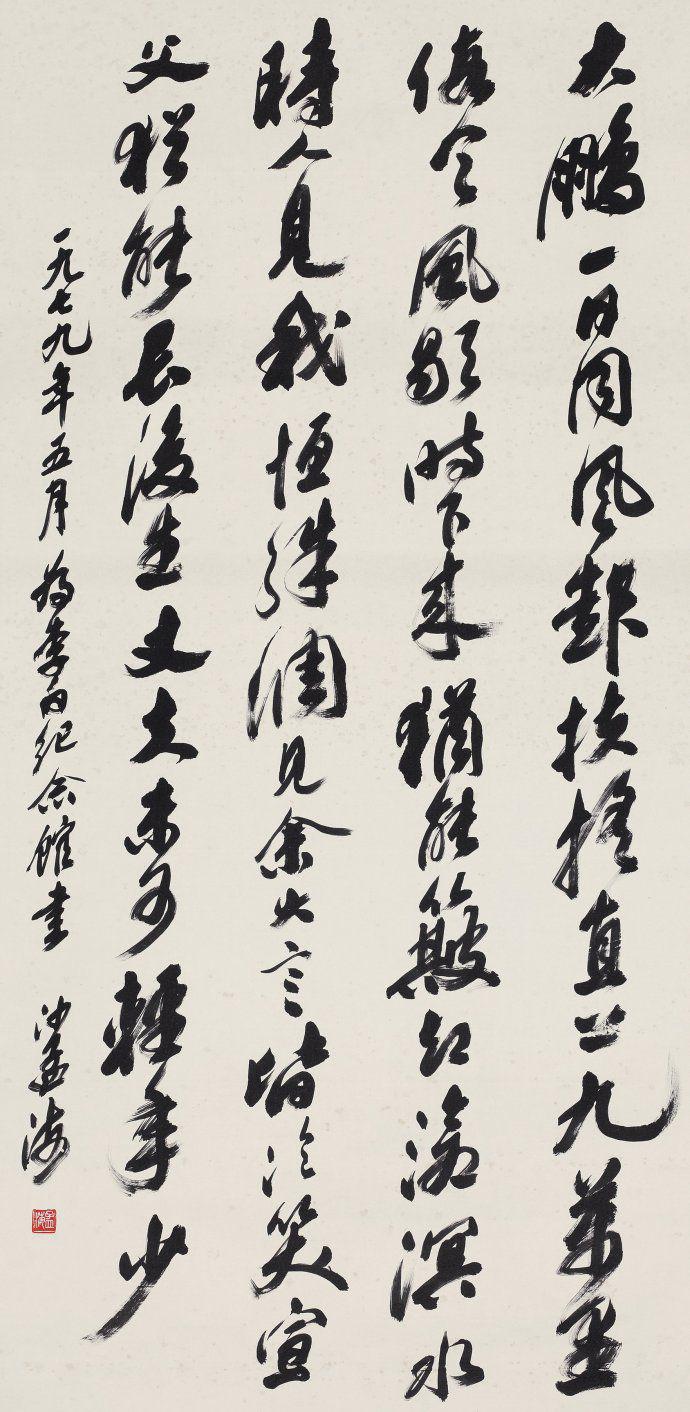 大鵬一日同風起扶搖直上九萬里
假令風歇時下來猶能簸却滄溟水
時人見我恒殊調見余大言皆冷笑宣
父猶能畏後生丈夫未可輕年少
一九七九年五月為李白紀念館書 沙孟海
孟海